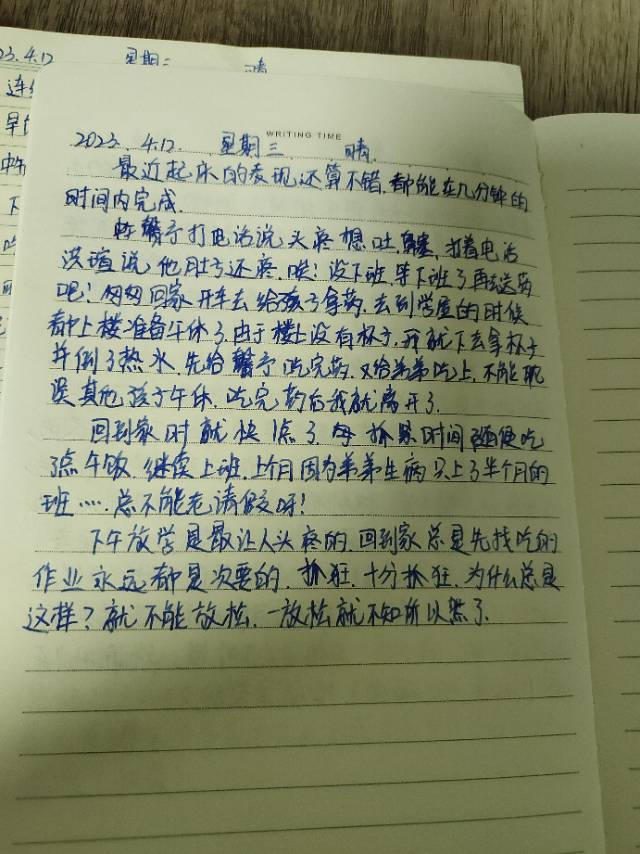 23.4.12 星期三 晴
WRITING TIME
2023.4.12. 星期三 晴.
最近起床的表现还算不错.都能在几分钟的
时间内完成.
打电话说头疼想吐,接着电话
说他肚子还疼.唉!没下班.等下班了再去送药
吧!匆匆回家开车去给孩子拿药.去到学屋的时候
都上楼准备午休了.由于楼上没有杯子,我就下去拿杯子
并倒了热水.先给吃完药.又给弟弟吃上.不能耽
误其他孩子午休.吃完药后我就离开了.
回到家时就快1点了.每抓紧时间随便吃
了点午饭.继续上班.上个月因为弟弟生病只上了半个月的
班.....总不能老请假呀!
下午放学是最让人头疼的.回到家总是先找吃的
作业永远都是次要的.抓狂.十分抓狂.为什么总是
这样?就不能放松.一放松就不知所以然了.